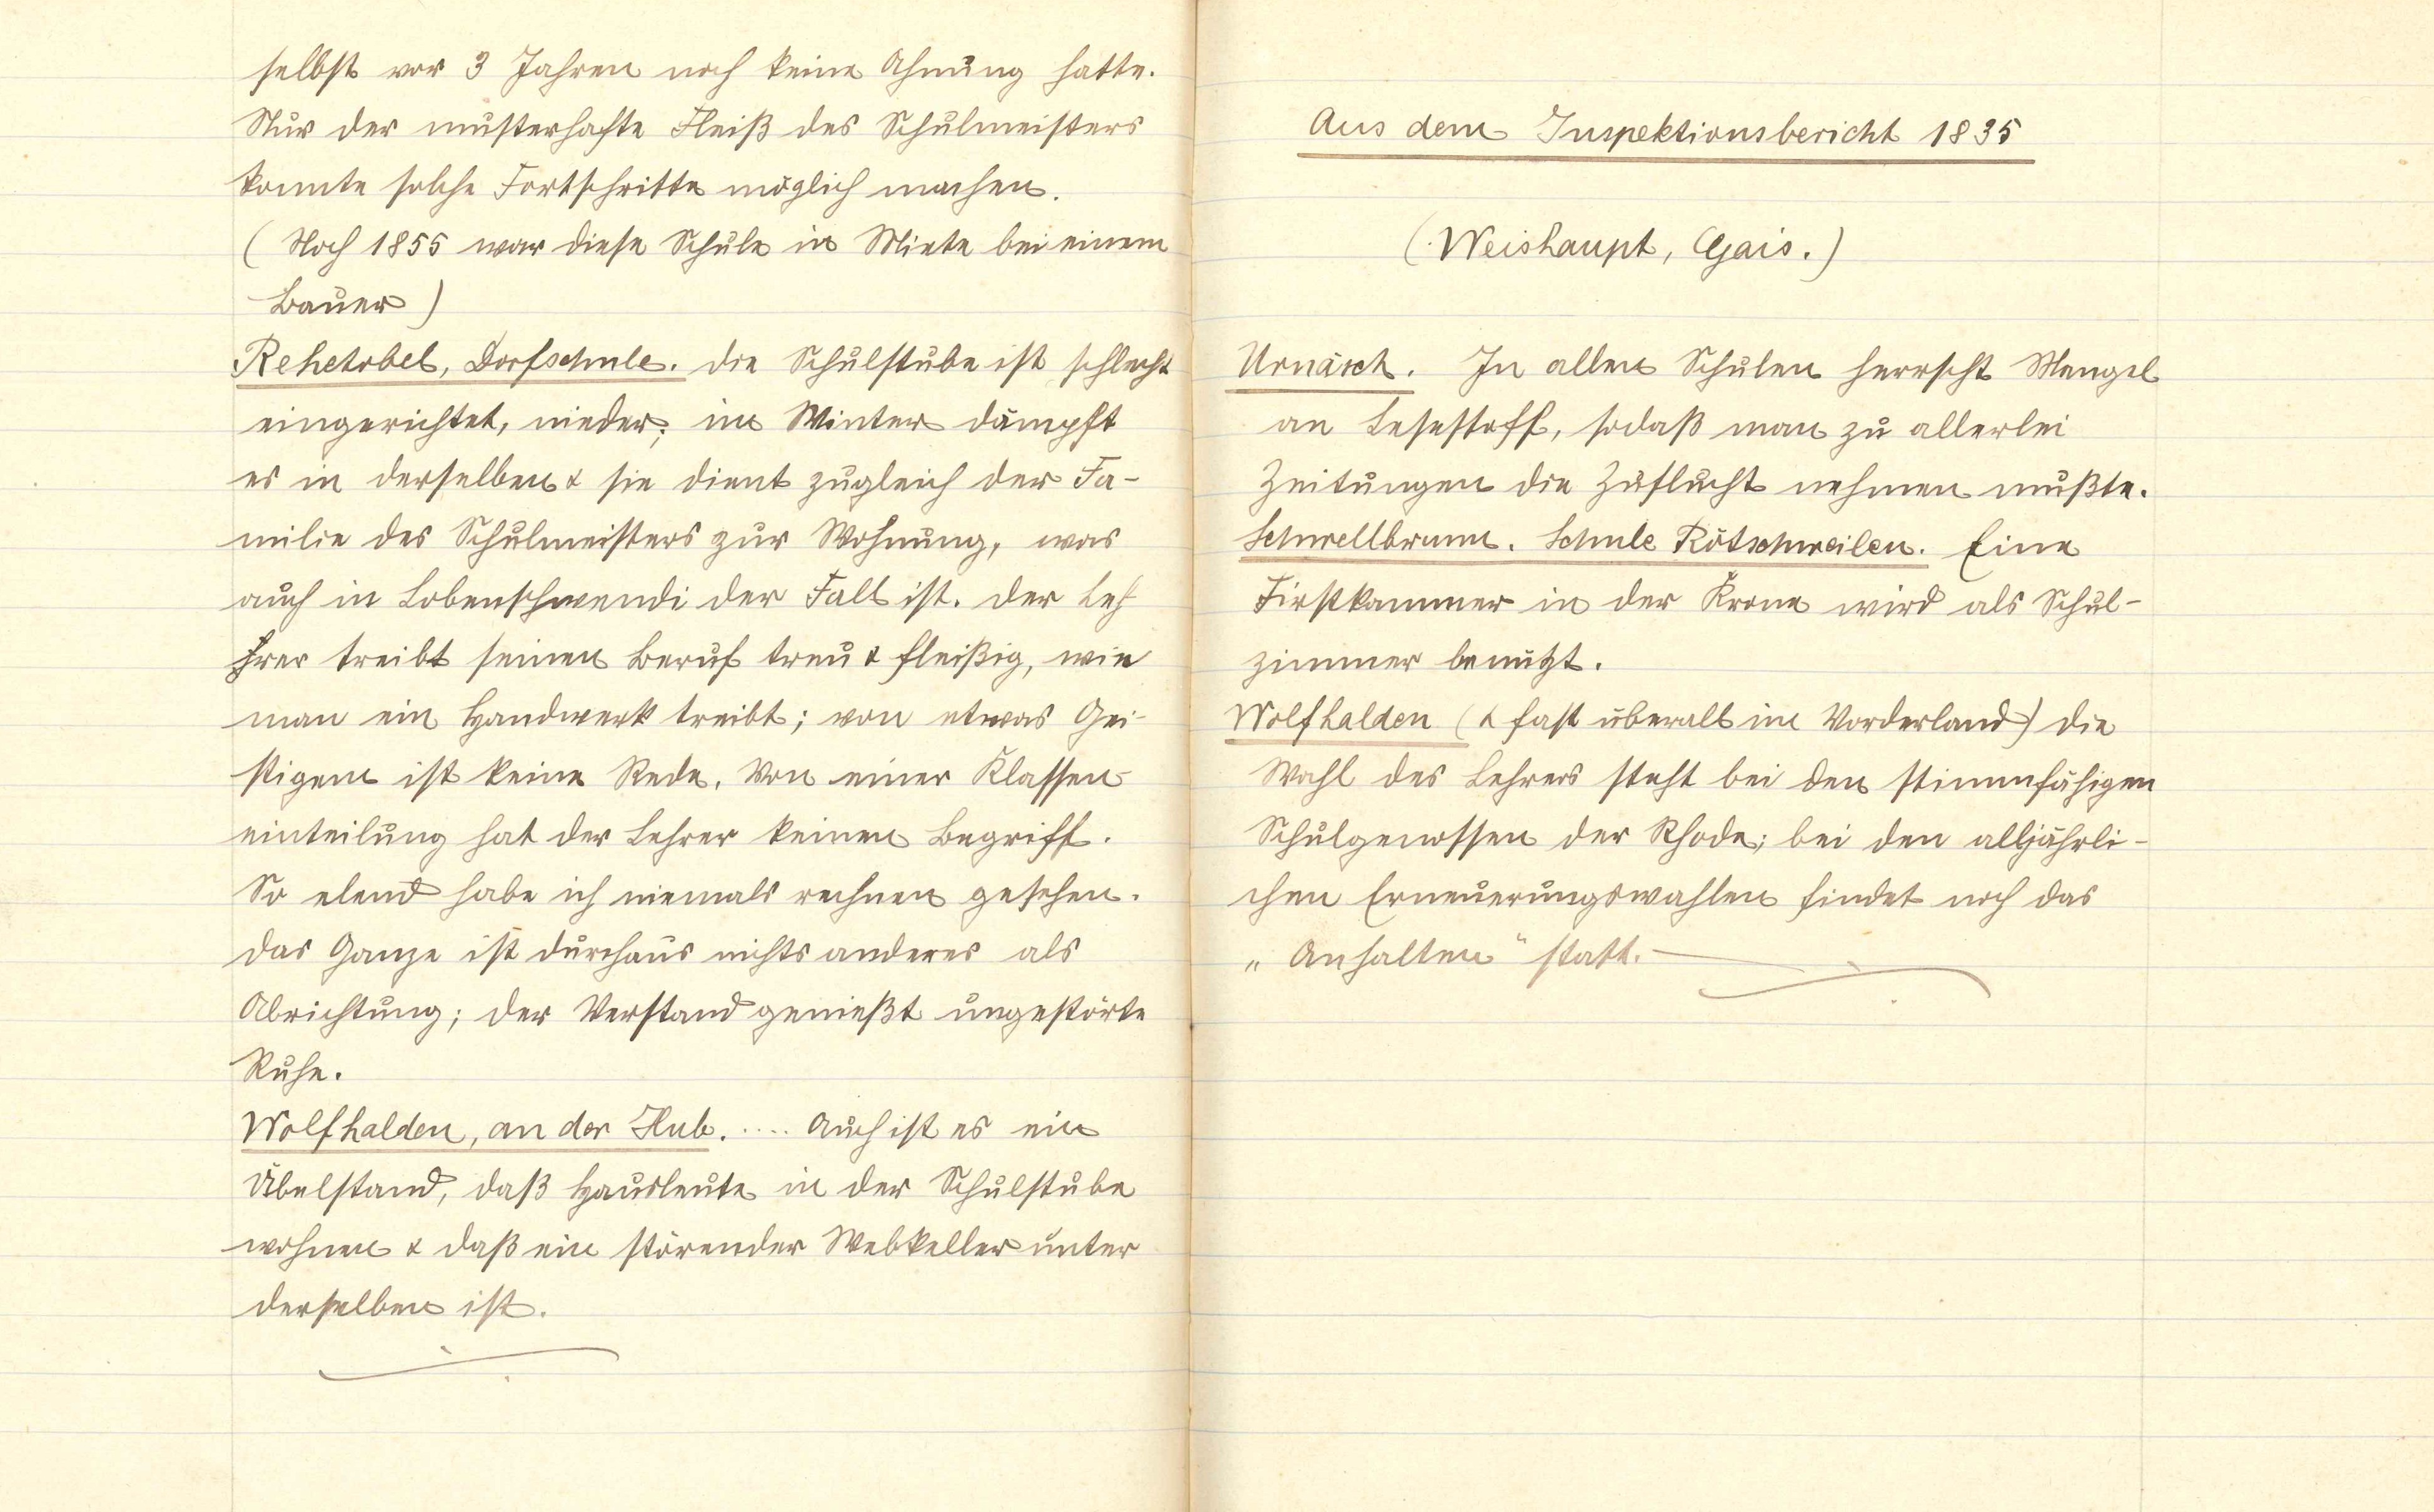 selbst vor 3 Jahren noch keine Ahnung hatte.
Nur der musterhafte Fleiß des Schulmeisters
konnte solche Fortschritte möglich machen.
(Noch 1855 war diese Schule in Miete bei einem
Bauer)
Rehetobel, Dorfschule. Die Schulstube ist schlecht
eingerichtet, nieder; im Winter dämpft
es in derselben & sie dient zugleich der Fa-
milie des Schulmeisters zur Wohnung, was
auch in Lobenschwendi der Fall ist. Der Leh
hrer treibt seinen Beruf treu & fleißig, wie
man ein Handwerk treibt; von etwas Gei-
stigem ist keine Rede. Von einer Klassen-
einteilung hat der Lehrer keinen Begriff.
So elend habe ich niemals rechnen gesehen.
Das Ganze ist durchaus nichts anderes als
Abrichtung; der Verstand genießt ungestörte
Ruhe.
Wolfhalden, an der Hub. .... Auch ist es ein
Übelstand, daß Hausleute in der Schulstube
wohnen & daß ein störender Webkeller unter
derselben ist.
Aus dem Inspektionsbericht 1835
(Weishaupt, Gais.)
Urnäsch. In allen Schulen herrscht Mangel
an Lesestoff, sodaß man zu allerlei
Zeitungen die Zuflucht nehmen mußte.
Schwellbrunn. Schule Rötschweilen. Eine
Firstkammer in der Krone wird als Schul-
zimmer benützt.
Wolfhalden (& fast überall im Vorderland) Die
Wahl des Lehrers steht bei den stimmfähigen
Schulgenossen der Rhode; bei den alljährli-
chen Erneuerungswahlen findet noch das
„Anhalten" statt. —